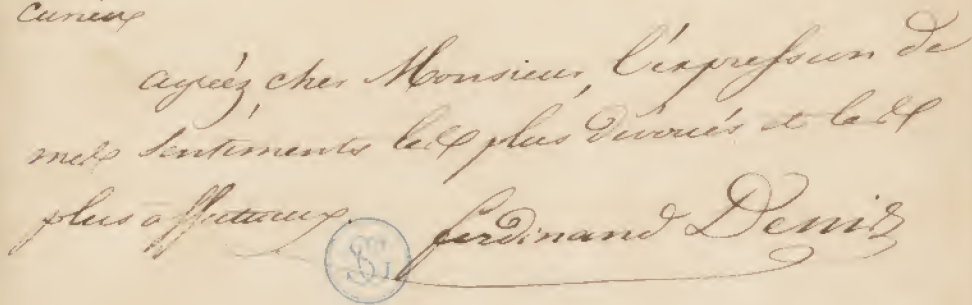 curieux
agréez cher Monsieur, l'expression de
mes sentiments les plus dévoués et les
plus affectueux.
ferdinand Denis